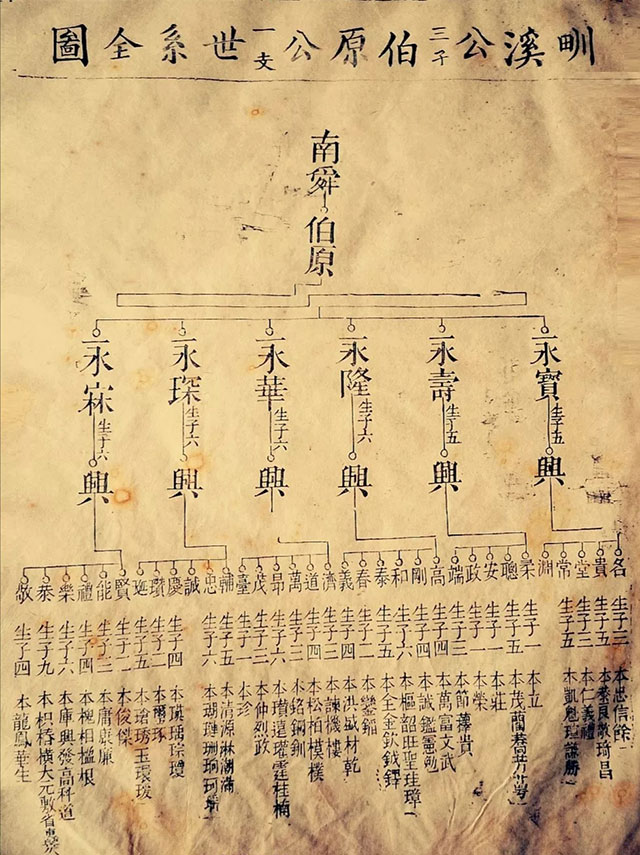 甽溪公三子伯原公一支世系全圖
南舜
伯原
永寶 生子五 興
永壽 生子五 興
永隆 生子六 興
永華 生子六 興
永琛 生子六 興
永 生子六 興
名 生子三 本忠信餘
貴 生子五 本良敬琦昌
堂 生子三 本仁義禮
常 生子五 本凱魁理謙勝
淵
柔 生子一 本立
聰 生子五 本茂蘭
安 生子一 本莊
政 生子一 本榮
端 生子三 本節貴
高 生子四 本萬富文武
剛 生子四 本誠鑑憲勉
和 生子六 本樞韶旺聖珪璋
泰 生子六 本全金欽鉞鐸
春 生子二 本鑾鎦
義 生子四 本洪斌材乾
濟 生子三 本諫機樓
道 生子四 本松柏模樸
萬 生子三 本銘鋼釧
昂 生子六 本瓚遠瓘霆桂楠
茂 生子三 本仲烈政
臺 生子一 本珍
輔 生子五 本清源淋湖滿
忠 生子六 本瑚璉珊珂
誠
慶 生子四 本瑛瑀琮瓊
瓚 生子二 本琢
珽 生子五 本珺琇玉環琰
賢 生子二 本俊傑
能 生子三 本庸康廉
禮 生子四 本槐相楹根
樂 生子六 本庫興發高科道
恭 生子九 本枳椿橫大元敷省惠
敬 生子四 本龍鳳華生